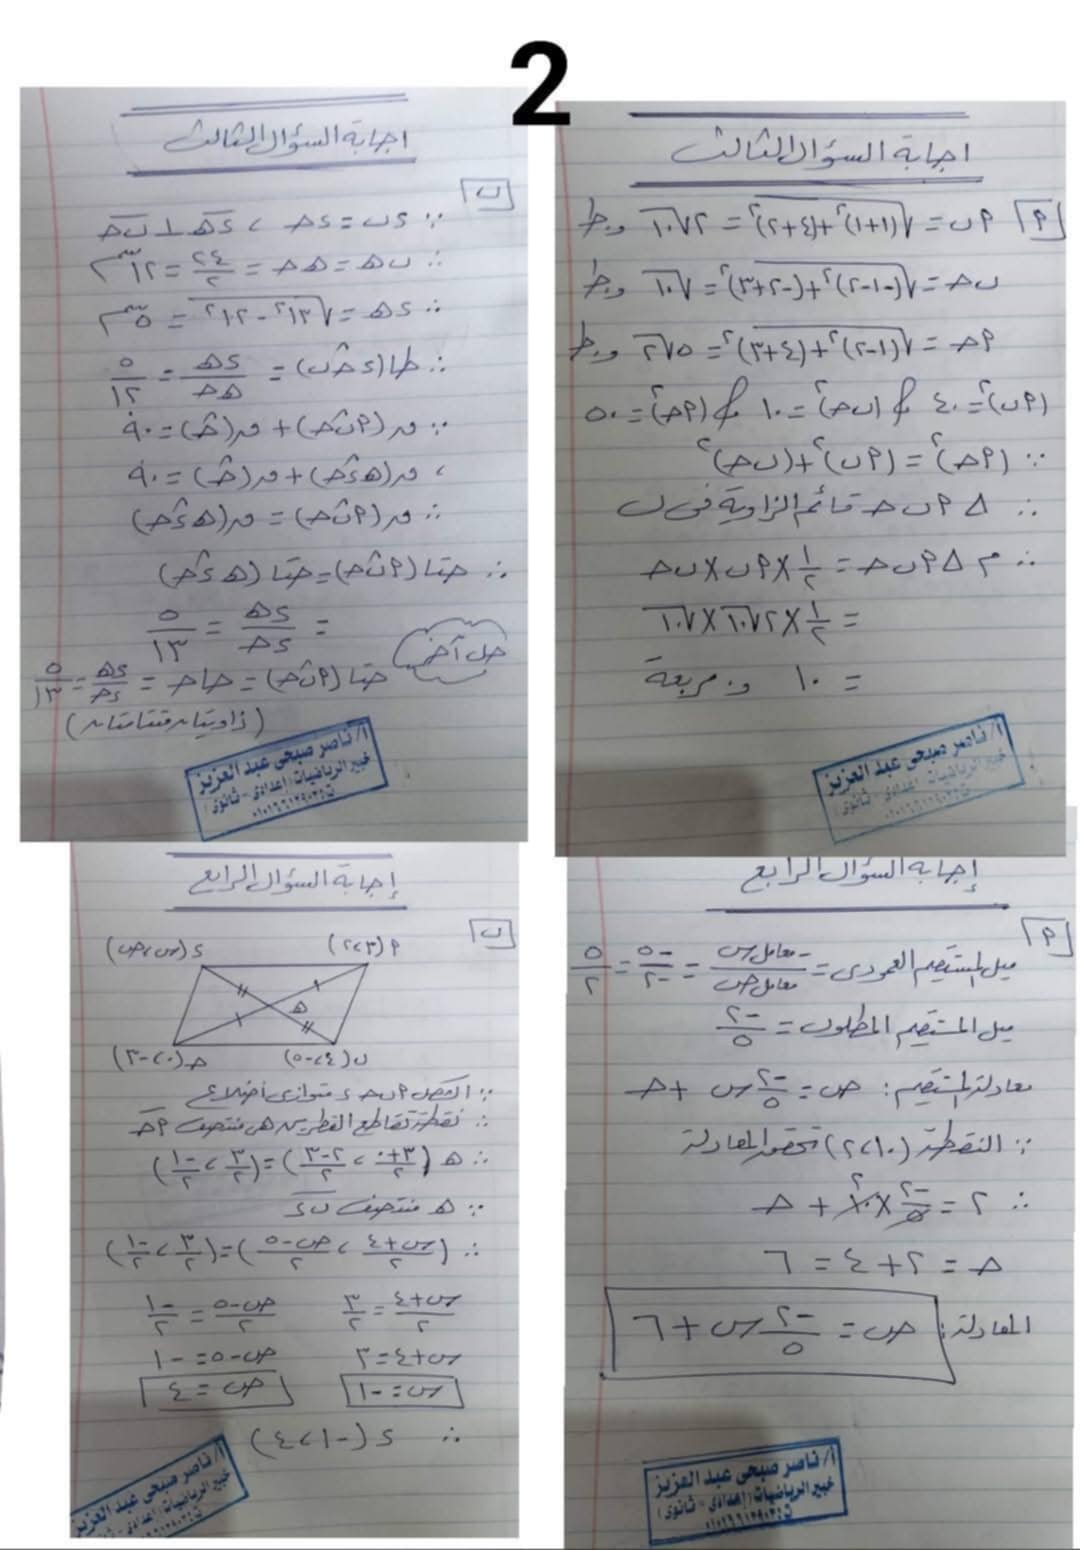 2
اجابة السؤال الثالث
[أ] أ ب = √(١+١)²+(٤+٢)² = ٢√١٠ وحدة طول
ب ج = √(-١-٢)²+(-٢+٣)² = √١٠ وحدة طول
أ ج = √(١-٢)²+(٤+٣)² = ٥√٢ وحدة طول
(أ ب)² = ٤٠ ، (ب ج)² = ١٠ ، (أ ج)² = ٥٠
∵ (أ ج)² = (أ ب)² + (ب ج)²
∴ △ أ ب ج قائم الزاوية فى ب
∴ م △ أ ب ج = ١/٢ × أ ب × ب ج
= ١/٢ × ٢√١٠ × √١٠
= ١٠ و. مربعة
أ/ ناصر صبحى عبد العزيز
خبير الرياضيات (إعدادى - ثانوى)
اجابة السؤال الثالث
[ب]
∵ ء ب = ء ج ، ء ه ⊥ ب ج
∴ ب ه = ه ج = ٢٤/٢ = ١٢ سم
∴ ء ه = √١٣² - ١٢² = ٥ سم
∴ طا (ء ج ب) = ء ه/ه ج = ٥/١٢
∵ ق (أ ب ج) + ق (ج) = ٩٠
، ق (ه ء ج) + ق (ج) = ٩٠
∴ ق (أ ب ج) = ق (ه ء ج)
∴ جتا (أ ب ج) = جتا (ه ء ج)
= ء ه/ء ج = ٥/١٣
حل آخر
جتا (أ ب ج) = جا ج = ء ه/ء ج = ٥/١٣
(زاويتان متتامتان)
أ/ ناصر صبحى عبد العزيز
خبير الرياضيات (إعدادى - ثانوى)
إجابة السؤال الرابع
[أ]
ميل المستقيم العمودى = -معامل س/معامل ص = -٥/-٢ = ٥/٢
ميل المستقيم المطلوب = -٢/٥
معادلة المستقيم: ص = -٢/٥ س + ج
∵ النقطة (١٠ ، ٢) تحقق المعادلة
∴ ٢ = -٢/٥ × ١٠ + ج
ج = ٢ + ٤ = ٦
المعادلة: ص = -٢/٥ س + ٦
أ/ ناصر صبحى عبد العزيز
خبير الرياضيات (إعدادى - ثانوى)
إجابة السؤال الرابع
[ب]
أ (٣ ، ٢) ء (س ، ص)
ه
ب (٤ ، -٥) ج (٠ ، -٣)
∵ الشكل أ ب ج ء متوازى أضلاع
∴ نقطة تقاطع القطرين هى منتصف أ ج
∴ ه (٣+٠/٢ ، ٢-٣/٢) = (٣/٢ ، -١/٢)
∵ ه منتصف ب ء
∴ (س+٤/٢ ، ص-٥/٢) = (٣/٢ ، -١/٢)
س+٤/٢ = ٣/٢ ص-٥/٢ = -١/٢
س+٤ = ٣ ص-٥ = -١
س = -١ ص = ٤
∴ ء (-١ ، ٤)
أ/ ناصر صبحى عبد العزيز
خبير الرياضيات (إعدادى - ثانوى)